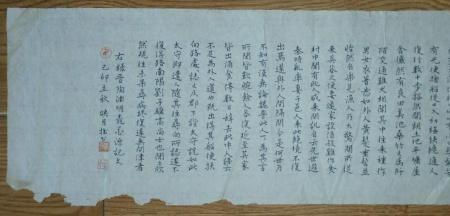 復行數十步豁然開朗土地平曠屋
舍儼然有良田美池桑竹之屬阡
陌交通雞犬相聞其中往來種作
男女衣著悉如外人黃髮垂髫並
怡然自樂見漁人乃大驚問所從
來具答之便要還家設酒殺雞作食
村中聞有此人咸來問訊自云先世避
秦時亂率妻子邑人來此絕境不復
出焉遂與外人間隔問今是何世乃
不知有漢無論魏晉此人一一為具言
所聞皆歎惋餘人各復延至其家
皆出酒食停數日辭去此中人語云
不足為外人道也既出得其船便扶
向路處處誌之及郡下詣太守說如此
太守即遣人隨其往尋向所誌遂不
復得路南陽劉子驥高尚士也聞之欣
然規往未果尋病終後遂無問津者
右錄晉陶淵明桃花源記文
己卯立秋